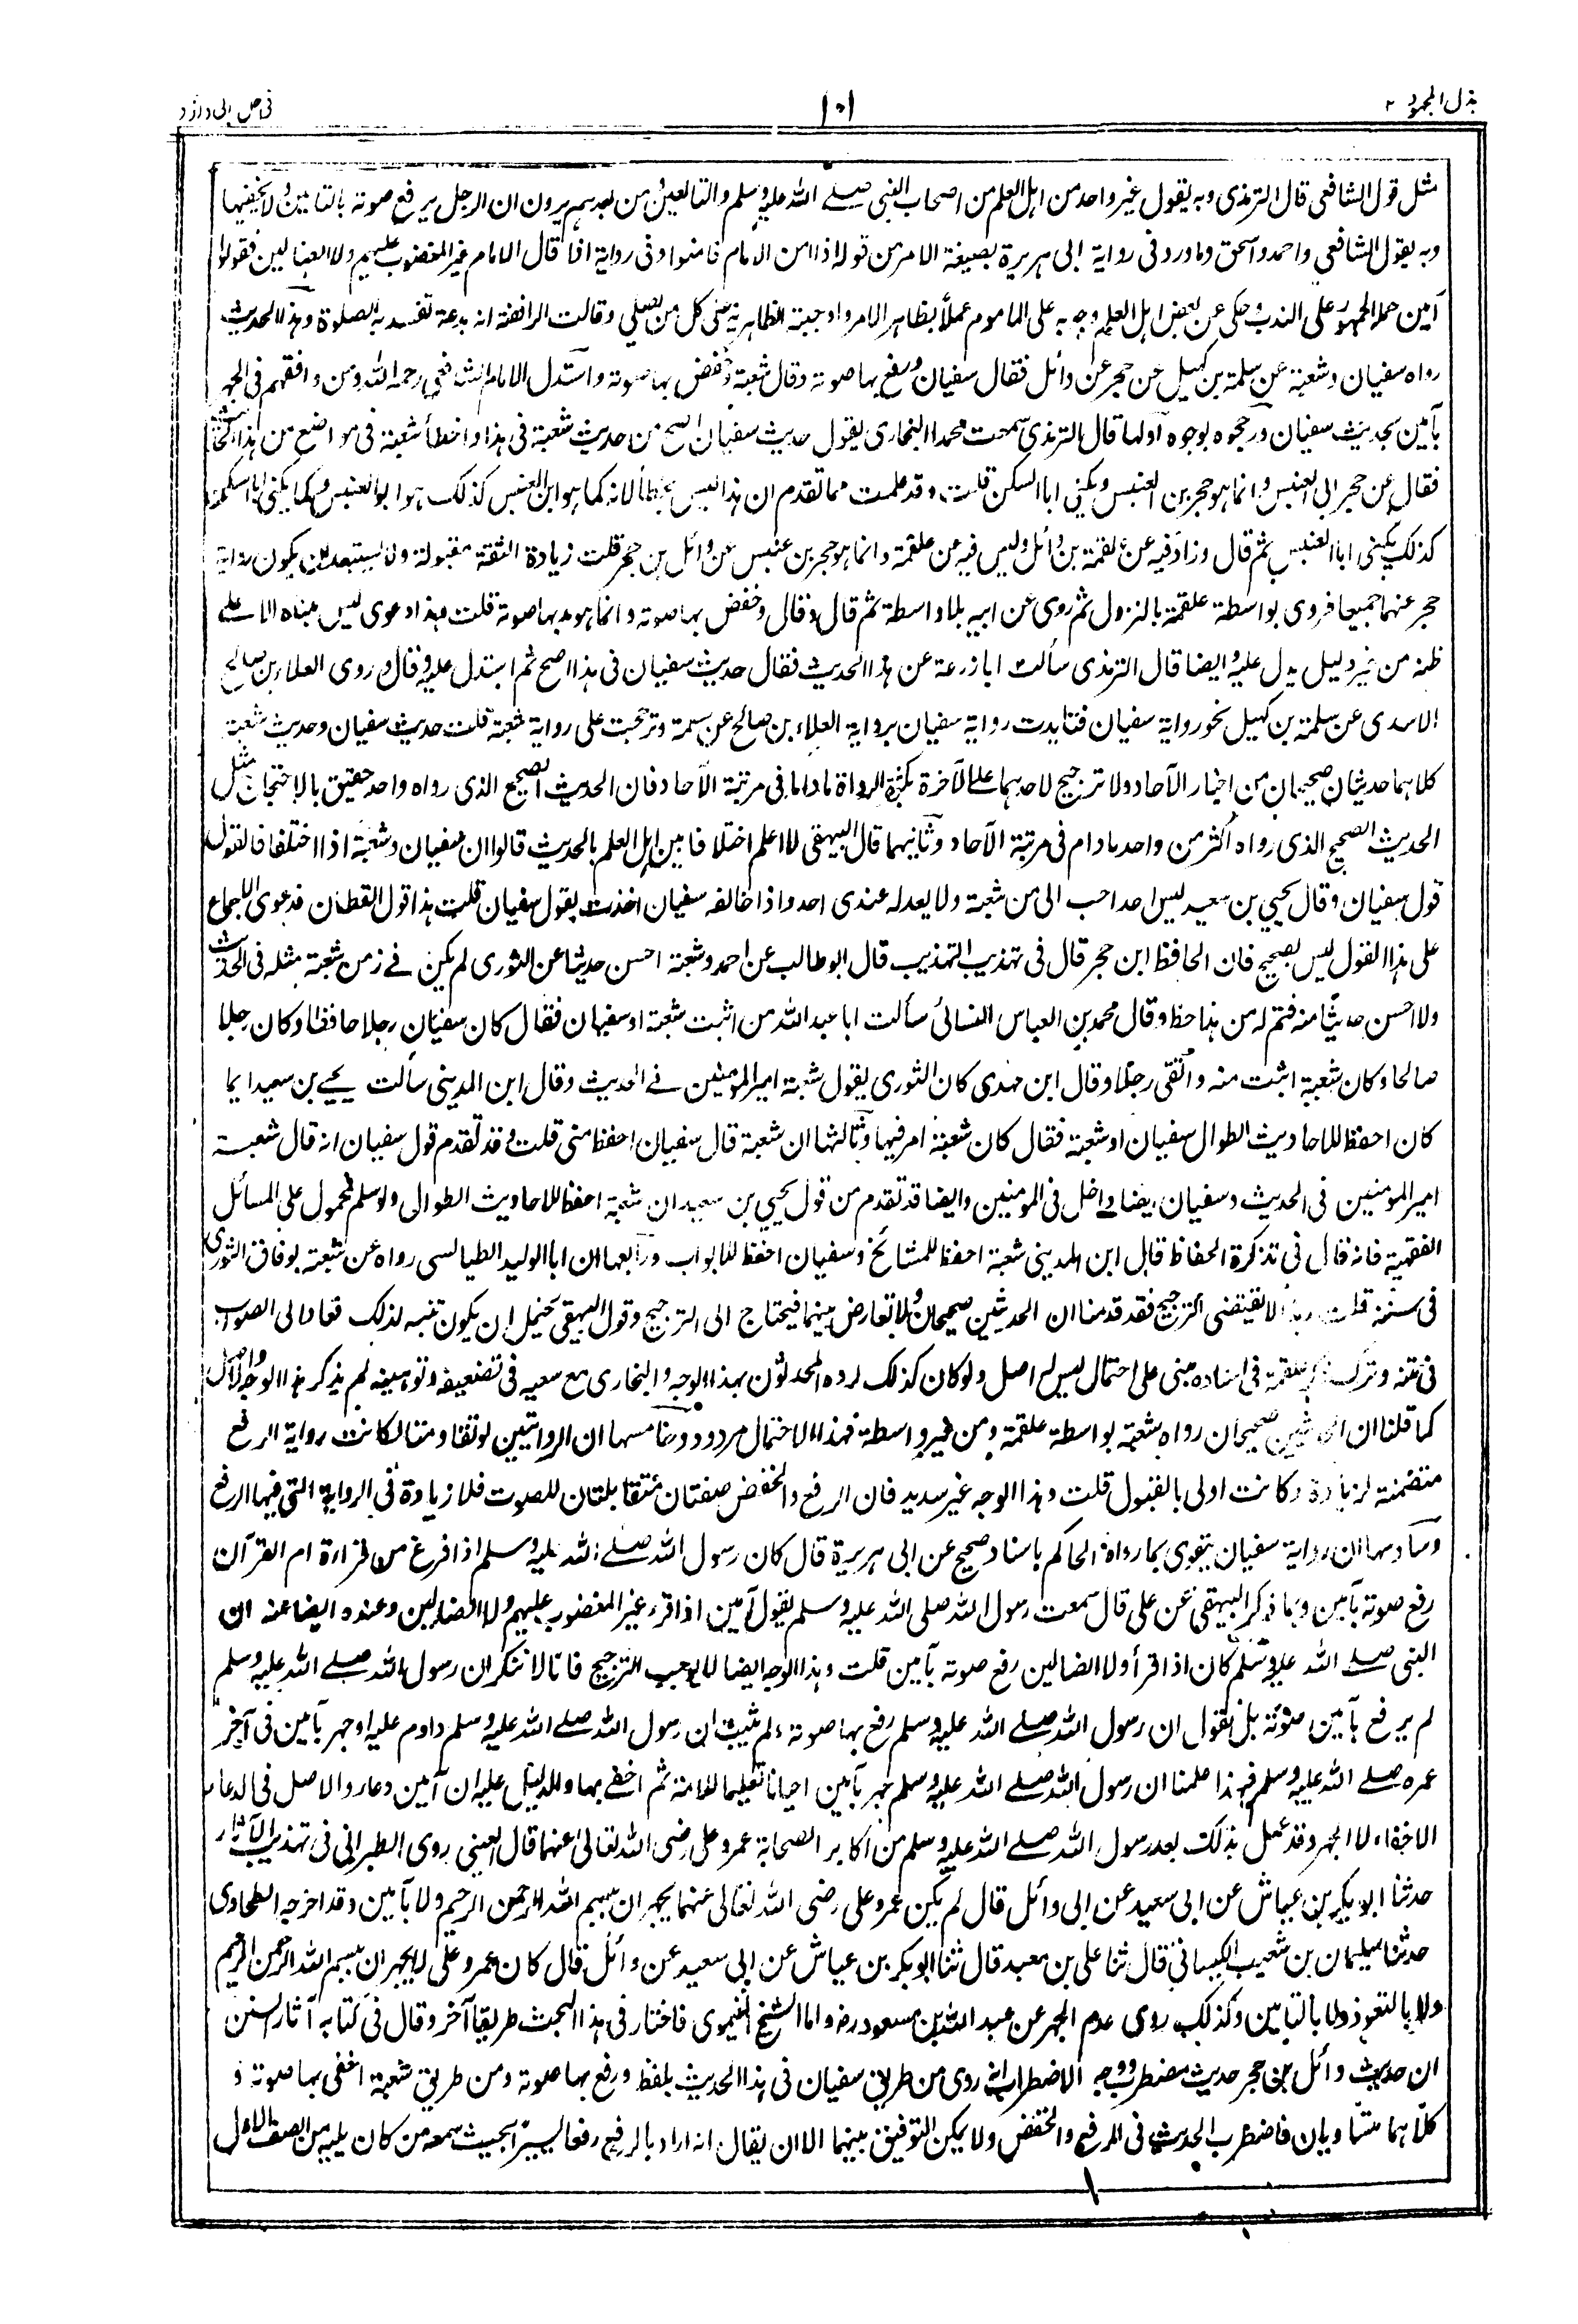 بذل المجهود ٢
١٠١
فى حل ابى داؤد
مثل قول الشافعى قال الترمذى وبه يقول غير واحد من اهل العلم من اصحاب النبى صلے الله عليه وسلم والتابعين ومن بعدهم يرون ان الرجل يرفع صوته بالتأمين ولا يخفيها
وبه يقول الشافعي واحمد واسحق وما ورد فى رواية ابى هريرة بصيغة الامر من قوله اذا امن الامام فامنوا وفى رواية اذا قال الامام غير المغضوب عليهم ولا الضالين فقولوا
آمين حمله الجمهور على الندب وحكى عن بعض اهل العلم وجوبه على الماموم عملاً بظاهر الامر واوجبته الظاهرية على كل من يصلي وقالت الرافضة انه بدعة تفسد به الصلوة وهذا الحديث
رواه سفيان وشعبة عن سلمة بن كهيل عن حجر عن وائل فقال سفيان ورفع بها صوته وقال شعبة وخفض بها صوته واستدل الامام الشافعى رحمه الله ومن وافقهم فى الجهر
بآمين بحديث سفيان ورجحوه بوجوه اولها قال الترمذى سمعت محمدا البخارى يقول حديث سفيان اصح من حديث شعبة فى هذا واخطأ شعبة فى مواضع من هذا الحديث
فقال عن حجر ابى العنبس وانما هو حجر بن العنبس ويكنى ابا السكن قلت وقد علمت مما تقدم ان هذا ليس بخطأ لانه كما هو ابن العنبس كذلك هو ابو العنبس وكما يكنى ابا السكن
كذلك يكنى ابا العنبس ثم قال وزاد فيه عن علقمة بن وائل وليس فيه عن علقمة وانما هو حجر بن عنبس عن وائل بن حجر قلت زيادة الثقة مقبولة ولا يستبعد ان يكون رواية
حجر عنهما جميعا فروى بواسطة علقمة بالنزول ثم روى عن ابيه بلا واسطة ثم قال وقال وخفض بها صوته وانما هو مد بها صوته قلت هذا دعوى ليس مبناه الا على
ظنه من غير دليل يدل عليه وايضا قال الترمذى سألت ابا زرعة عن هذا الحديث فقال حديث سفيان فى هذا اصح ثم استدل عليه وقال وروى العلاء بن صالح
الاسدى عن سلمة بن كهيل نحو رواية سفيان فتايدت رواية سفيان برواية العلاء بن صالح عن سلمة وترجحت على رواية شعبة قلت حديث سفيان وحديث شعبة
كلاهما حديثان صحيحان من اخبار الآحاد ولا ترجيح لاحدهما على الآخرة بكثرة الرواة ما داما فى مرتبة الآحاد فان الحديث الصحيح الذى رواه واحد حقيق بالاحتجاج مثل
الحديث الصحيح الذى رواه اكثر من واحد ما دام فى مرتبة الآحاد وثانيهما قال البيهقى لا اعلم اختلافا بين اهل العلم بالحديث قالوا ان سفيان وشعبة اذا اختلفا فالقول
قول سفيان وقال يحيى بن سعيد ليس احد احب الى من شعبة ولا يعدله عندى احد واذا خالفه سفيان اخذت بقول سفيان قلت هذا قول القطان فدعوى الاجماع
على هذا القول ليس بصحيح فان الحافظ ابن حجر قال فى تهذيب التهذيب قال ابو طالب عن احمد وشعبة احسن حديثا عن الثورى لم يكن فے زمن شعبة مثله فى الحديث
ولا احسن حديثا منه قسم له من هذا حظ وقال محمد بن العباس النسائى سألت ابا عبد الله من اثبت شعبة او سفيان فقال كان سفيان رجلا حافظا وكان رجلا
صالحا وكان شعبة اثبت منه واتقى رجلا وقال ابن مهدى كان الثورى يقول شعبة امير المومنين فے الحديث وقال ابن المدينى سألت يحيے بن سعيد ايما
كان احفظ للاحاديث الطوال سفيان او شعبة فقال كان شعبة امر فيها وثالثها ان شعبة قال سفيان احفظ منى قلت وقد تقدم قول سفيان انه قال شعبة
امير المومنين فى الحديث وسفيان ايضا داخل فى المومنين وايضا قد تقدم من قول يحيى بن سعيد ان شعبة احفظ للاحاديث الطوال ولو سلم فمحمول على المسائل
الفقهية فانه قال فى تذكرة الحفاظ قال ابن المدينى شعبة احفظ للمشائخ وسفيان احفظ للابواب ورابعها ان ابا الوليد الطيالسى رواه عن شعبة بوفاق الثورى
فى سننه قلت وهذا لا يقتضى الترجيح فقد قدمنا ان الحديثين صحيحان ولا تعارض بينهما فيحتاج الى الترجيح وقول البيهقى يحتمل ان يكون تنبه لذلك فعاد الى الصواب
فى متنه وترك ذكر علقمة فى اسناده مبنى على احتمال ليس له اصل ولو كان كذلك لرده المحدثون بهذا الوجه والبخارى مع سعيه فى تضعيفه وتوهينه لم يذكر هذا الوجه والاصل
كما قلنا ان الحديثين صحيحان رواه شعبة بواسطة علقمة ومن غير واسطة فهذا الاحتمال مردود وخامسها ان الروايتين لو تقاومتا لكانت رواية الرفع
متضمنة لزيادة وكانت اولى بالقبول قلت وهذا الوجه غير سديد فان الرفع والخفض صفتان متقابلتان للصوت فلا زيادة فى الرواية التى فيها الرفع
وسادسها ان رواية سفيان يتقوى بما رواه الحاكم باسناد صحيح عن ابى هريرة قال كان رسول الله صلے الله عليه وسلم اذا فرغ من قراءة ام القرآن
رفع صوته بآمين وبما ذكر البيهقى عن على قال سمعت رسول الله صلى الله عليه وسلم يقول آمين اذا قرء غير المغضوب عليهم ولا الضالين وعنده ايضا عنه ان
النبى صلے الله عليه وسلم كان اذا قرأ ولا الضالين رفع صوته بآمين قلت وهذا الوجه ايضا لا يوجب الترجيح فانا لا ننكر ان رسول الله صلے الله عليه وسلم
لم يرفع بآمين صوته بل نقول ان رسول الله صلے الله عليه وسلم رفع بها صوته ولم يثبت ان رسول الله صلے الله عليه وسلم داوم عليه او جهر بآمين فى آخر
عمره صلے الله عليه وسلم فبهذا علمنا ان رسول الله صلے الله عليه وسلم جهر بآمين احيانا تعليما للامة ثم اخفے بها والدليل عليه ان آمين دعاء والاصل فى الدعاء
الاخفاء لا الجهر وقد عمل بذلك بعد رسول الله صلے الله عليه وسلم من اكابر الصحابة عمر وعلى رضى الله تعالى عنهما قال العينى روى الطبرانى فى تهذيب الآثار
حدثنا ابو بكر بن عياش عن ابى سعيد عن ابى وائل قال لم يكن عمر وعلى رضى الله تعالى عنهما يجهران ببسم الله الرحمن الرحيم ولا بآمين وقد اخرجه الطحاوى
حدثنا سليمان بن شعيب الكيسانى قال ثنا على بن معبد قال ثنا ابو بكر بن عياش عن ابى سعيد عن وائل قال كان عمر وعلى لا يجهران ببسم الله الرحمن الرحيم
ولا بالتعوذ ولا بالتامين وكذلك روى عدم الجهر عن عبد الله بن مسعود رضـ واما الشيخ النيموى فاختار فى هذا البحث طريقا آخر وقال فى كتابه آثار السنن
ان حديث وائل بن حجر حديث مضطرب ووجه الاضطراب انه روى من طريق سفيان فى هذا الحديث بلفظ ورفع بها صوته ومن طريق شعبة اخفى بها صوته و
كلاهما متساويان فاضطرب الحديث فى الرفع والخفض ولا يمكن التوفيق بينهما الا ان يقال انه اراد بالرفع رفعا يسيرا بحيث سمعه من كان يليه من الصف الاول